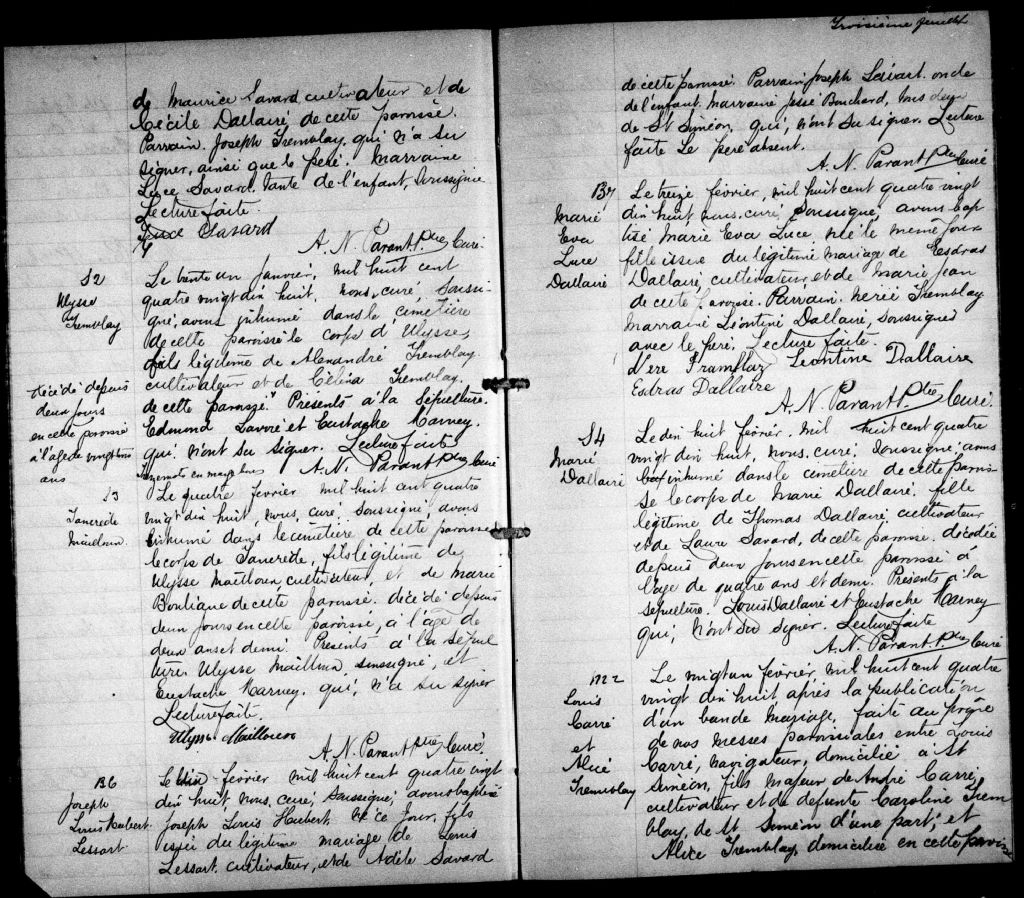 de Maurice Savard cultivateur et de
Cécile Dallaire, de cette paroisse.
Parrain Joseph Tremblay, qui n'a su
signer, ainsi que le père. Marraine
Luce Savard, tante de l'enfant, soussignée
Lecture faite.
Luce Savard
A. N. Parant Ptre Curé
S2
Ulysse
Tremblay
décédé depuis
deux jours
en cette paroisse
à l'age de vingt
ans
Le trente un janvier, mil huit cent
quatre vingt dix huit, nous, curé, soussi-
gné, avons inhumé dans le cimetière
de cette paroisse le corps d'Ulysse,
fils légitime de Alexandre Tremblay
cultivateur et de Célina Tremblay,
de cette paroisse. Présents à la sépulture.
Edmond Savard et Eustache Harvey.
qui n'ont su signer. Lecture faite
A. N. Parant Ptre Curé
S3
Tancrède
Mailloux
Le quatre février mil huit cent quatre
vingt dix huit, nous, curé soussigné avons
inhumé dans le cimetière de cette paroisse
le corps de Tancrède, fils légitime de
Ulysse Mailloux cultivateur, et de Marie
Boulianne de cette paroisse. décédé depuis
deux jours en cette paroisse, à l'âge de
deux ans et demi. Présents à la sépul
ture. Ulysse Mailloux soussigné, et
Eustache Harvey, qui, n'a su signer
Lecture faite.
Ulysse Mailloux
A. N. Parant Ptre Curé
B6
Joseph
Louis Hubert
Lessart
Le dix février mil huit cent quatre vingt
dix huit, nous, curé, soussigné, avons baptisé
Joseph Louis Hubert né ce jour, fils
issu du légitime mariage de Louis
Lessart, cultivateur, et de Adèle Savard
Troisième feuillet
de cette paroisse. Parrain Joseph Savard oncle
de l'enfant. Marraine Bouchard, tous deux
de St Siméon, qui, n'ont su signer. Lecture
faite Le père absent.
A. N. Parant Ptre Curé
B7
Marie
Eva
Luce
Dallaire
Le treize février, mil huit cent quatre vingt
dix huit, nous, curé, soussigné, avons bap
tisé Marie Eva Luce née le même jour
fille issue du légitime mariage de Esdras
Dallaire, cultivateur, et de Marie Jean
de cette paroisse. Parrain, Nérée Tremblay
Marraine Léontine Dallaire, soussignés
avec le père. Lecture faite.
Nere Tramblay Leontine Dallaire
Esdras Dallaire
A. N. Parant Ptre Curé
S4
Marie
Dallaire
Le dix huit février, mil huit cent quatre
vingt dix huit, nous, curé, soussigné, avons
inhumé dans le cimetière de cette parois
se le corps de Marie Dallaire, fille
légitime de Thomas Dallaire, cultivateur
et de Laure Savard, de cette paroisse. décédée
depuis deux jours en cette paroisse à
l'age de quatre ans et demi. Présents à la
sépulture. Louis Dallaire et Eustache Harvey
qui, n'ont su signer. Lecture faite
A. N. Parant Ptre Curé
M2
Louis
Carré
et
Alice
Tremblay
Le vingt un février, mil huit cent quatre
vingt dix huit après la publication
d'un bande mariage, faite au prône
de nos messes paroissiales entre Louis
Carré, navigateur, domicilié à St
Siméon, fils majeur de André Carré,
cultivateur et de défunte Caroline Trem
blay, de St Siméon d'une part; et
Alice Tremblay, domiciliée en cette parois